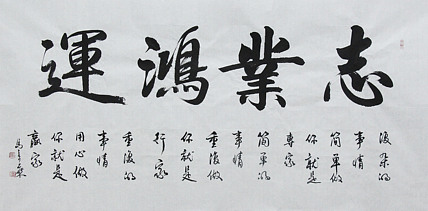 志業鴻運
復雜的
事情
簡單做
你就是
專家
簡單的
事情
重復做
你就是
行家
重復的
事情
用心做
你就是
贏家